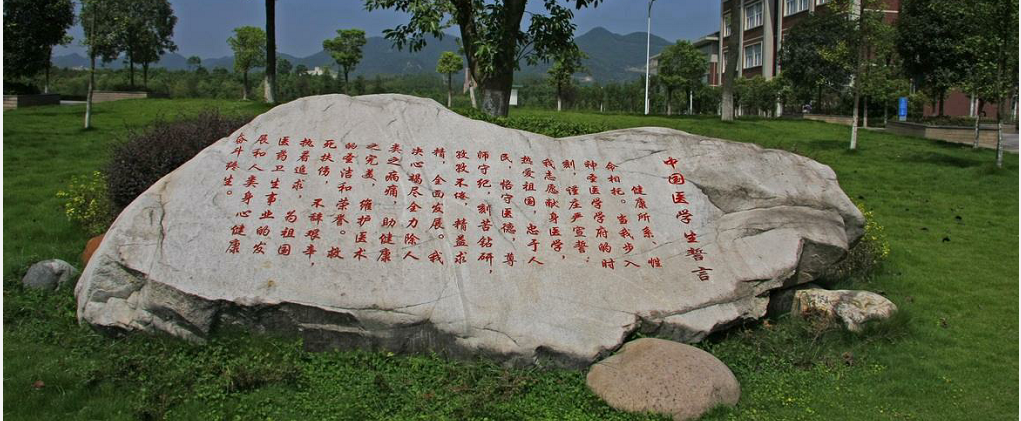 中国医学生誓言
健康所系、性
命相托。当我步入
神圣医学学府的时
刻，谨庄严宣誓：
我志愿献身医学，
热爱祖国，忠于人
民，恪守医德，尊
师守纪，刻苦钻研，
孜孜不倦，精益求
精，全面发展。我
决心竭尽全力除人
类之病痛，助健康
之完美，维护医术
的圣洁和荣誉。救
死扶伤，不辞艰辛，
执着追求，为祖国
医药卫生事业的发
展和人类身心健康
奋斗终生。